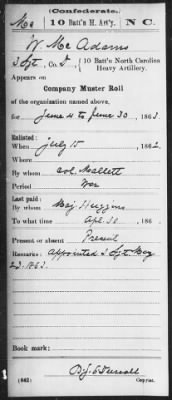 (Confederate.)
Mc 10 Batt'n H. Art'y. N C.
W. Mc Adams
Sgt, Co. 10 Batt'n North Carolina
Heavy Artillery.
Appears on
Company Muster Roll
of the organization named above,
for June 4 to June 30, 1863.
Enlisted:
When July 15, 1862.
Where
By whom Col. Mallett
Period War
Last paid:
By whom Maj Huggins
To what time Apl. 30, 186
Present or absent Present
Remarks: Appointed Sgt. May
Book mark:
(642) Copyist.